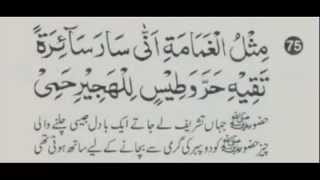 مِثْلُ الْغَمَامَةِ اَنّٰى سَارَ سَآئِرَةً
75
تَقِيْهِ حَرَّ وَطِيْسٍ لِلْهَجِيْرِ حَمِيْ
حضور ﷺ جہاں تشریف لے جاتے ایک بادل جیسی چلنے والی
چیز حضور ﷺ کو دوپہر کی گرمی سے بچانے کے لیے ساتھ ہوتی تھی